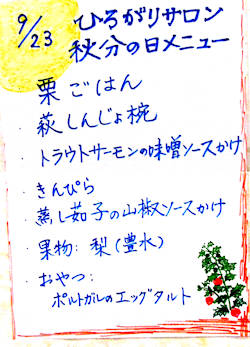 9/23
ひろがりサロン
秋分の日メニュー
栗ごはん
・萩しんじょ椀
・トラウトサーモンの味噌ソースかけ
・きんぴら
・蒸し茹子の山椒ソースかけ
・果物:梨(豊水)
・おやつ:
ポルトガルのエッグタルト